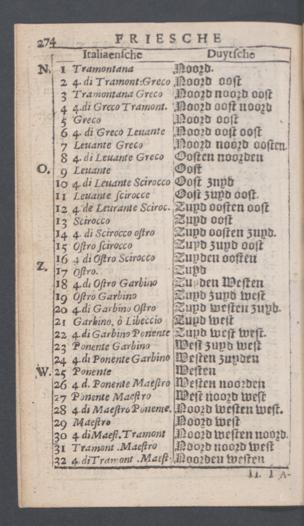 274 FRIESCHE
Italiaensche Duytsche
N. 1 Tramontana Noord.
2 4 di Tramont:Greco Noord oost
3 Tramontana Greco Noord noord oost
4 4.di Greco Tramont. Noord oost noord
5 Greco Noord oost
6 4. di Greco Leuante Noord oost oost
7 Leuante Greco Noord noord oosten.
8 4. di Leuante Greco Oosten noorden
O. 9 Leuante Oost
10 4 di Leuante Scirocco Oost zuyd
11 Leuante scirocco Oost zuyd oost.
12 4 de Leurante Sciroc. Zuyd oosten oost
13 Scirocco Zuyd oost
14 4. di Scirocco ostro Zuyd oosten zuyd.
15 Ostro scirocco Zuyd zuyd oost
16 4 di Ostro Scirocco Zuyden oosten
Z. 17 Ostro. Zuyd
18 4.di Ostro Garbino Zuyden Westen
19 Ostro Garbino Zuyd zuyd west
20 4.di Garbino Ostro Zuyd westen zuyd.
21 Garbino, ò Libeccio Zuyd west
22 4.di Garbino Ponente Zuyd west west.
23 Ponente Garbino West zuyd west
24 4.di Ponente Garbino Westen zuyden
W. 25 Ponente Westen
26 4 d. Ponente Maestro Westen noorden
27 Ponente Maestro West noord west
28 4 di Maestro Ponente. Noord westen west.
29 Maestro Noord west
30 4 di Maest.Tramont Noord westen noord.
31 Tramont.Maestro Noord noord west
32 4 di Tramont.Maest: Noorden westen
II. I A-